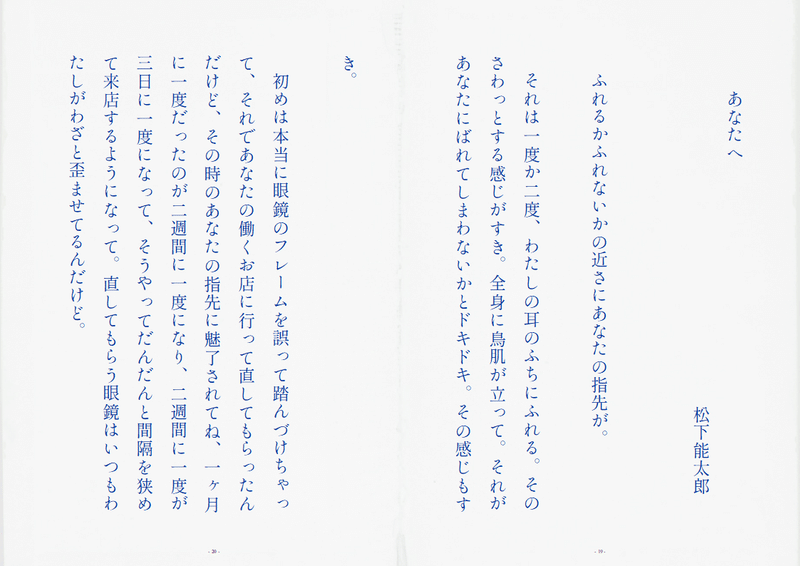 あなたへ
松下能太郎
ふれるかふれないかの近さにあなたの指先が。
それは一度か二度、わたしの耳のふちにふれる。その
さわっとする感じがすき。全身に鳥肌が立って。それが
あなたにばれてしまわないかとドキドキ。その感じもす
- 19 -
き。
初めは本当に眼鏡のフレームを誤って踏んづけちゃっ
て、それであなたの働くお店に行って直してもらったん
だけど、その時のあなたの指先に魅了されてね、一ヶ月
に一度だったのが二週間に一度になり、二週間に一度が
三日に一度になって、そうやってだんだんと間隔を狭め
て来店するようになって。直してもらう眼鏡はいつもわ
たしがわざと歪ませてるんだけど。
- 20 -